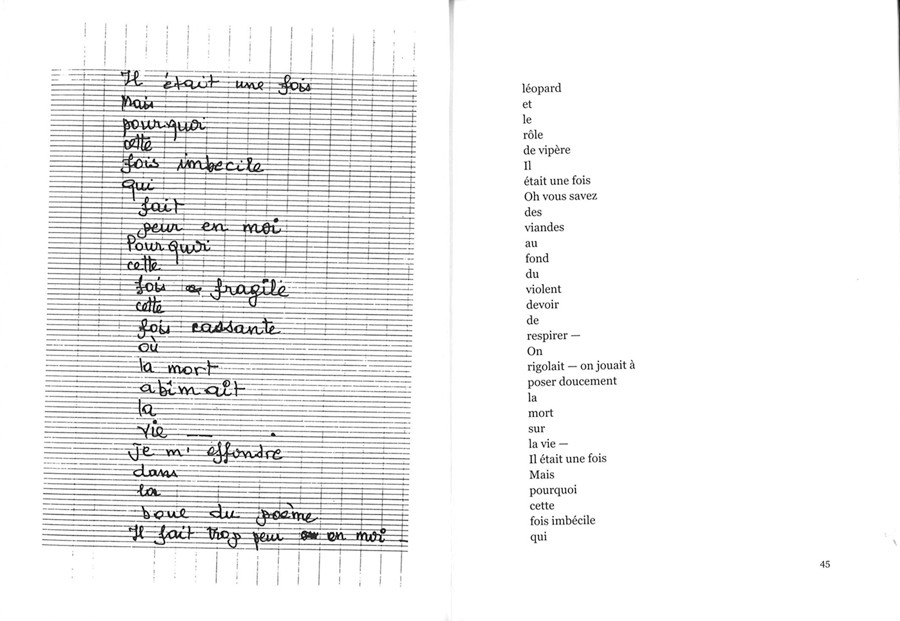 Il était une fois
Mais
pourquoi
cette
fois imbecile
qui
fait
peur en moi
Pourquoi
cette
fois fragile
cette
fois cassante
où
la mort
abîmait
la
vie — .
Je m'effondre
dans
la
boue du poème
Il fait trop peur en moi —
léopard
et
le
rôle
de vipère
Il
était une fois
Oh vous savez
des
viandes
au
fond
du
violent
devoir
de
respirer —
On
rigolait — on jouait à
poser doucement
la
mort
sur
la vie —
Il était une fois
Mais
pourquoi
cette
fois imbécile
qui
45